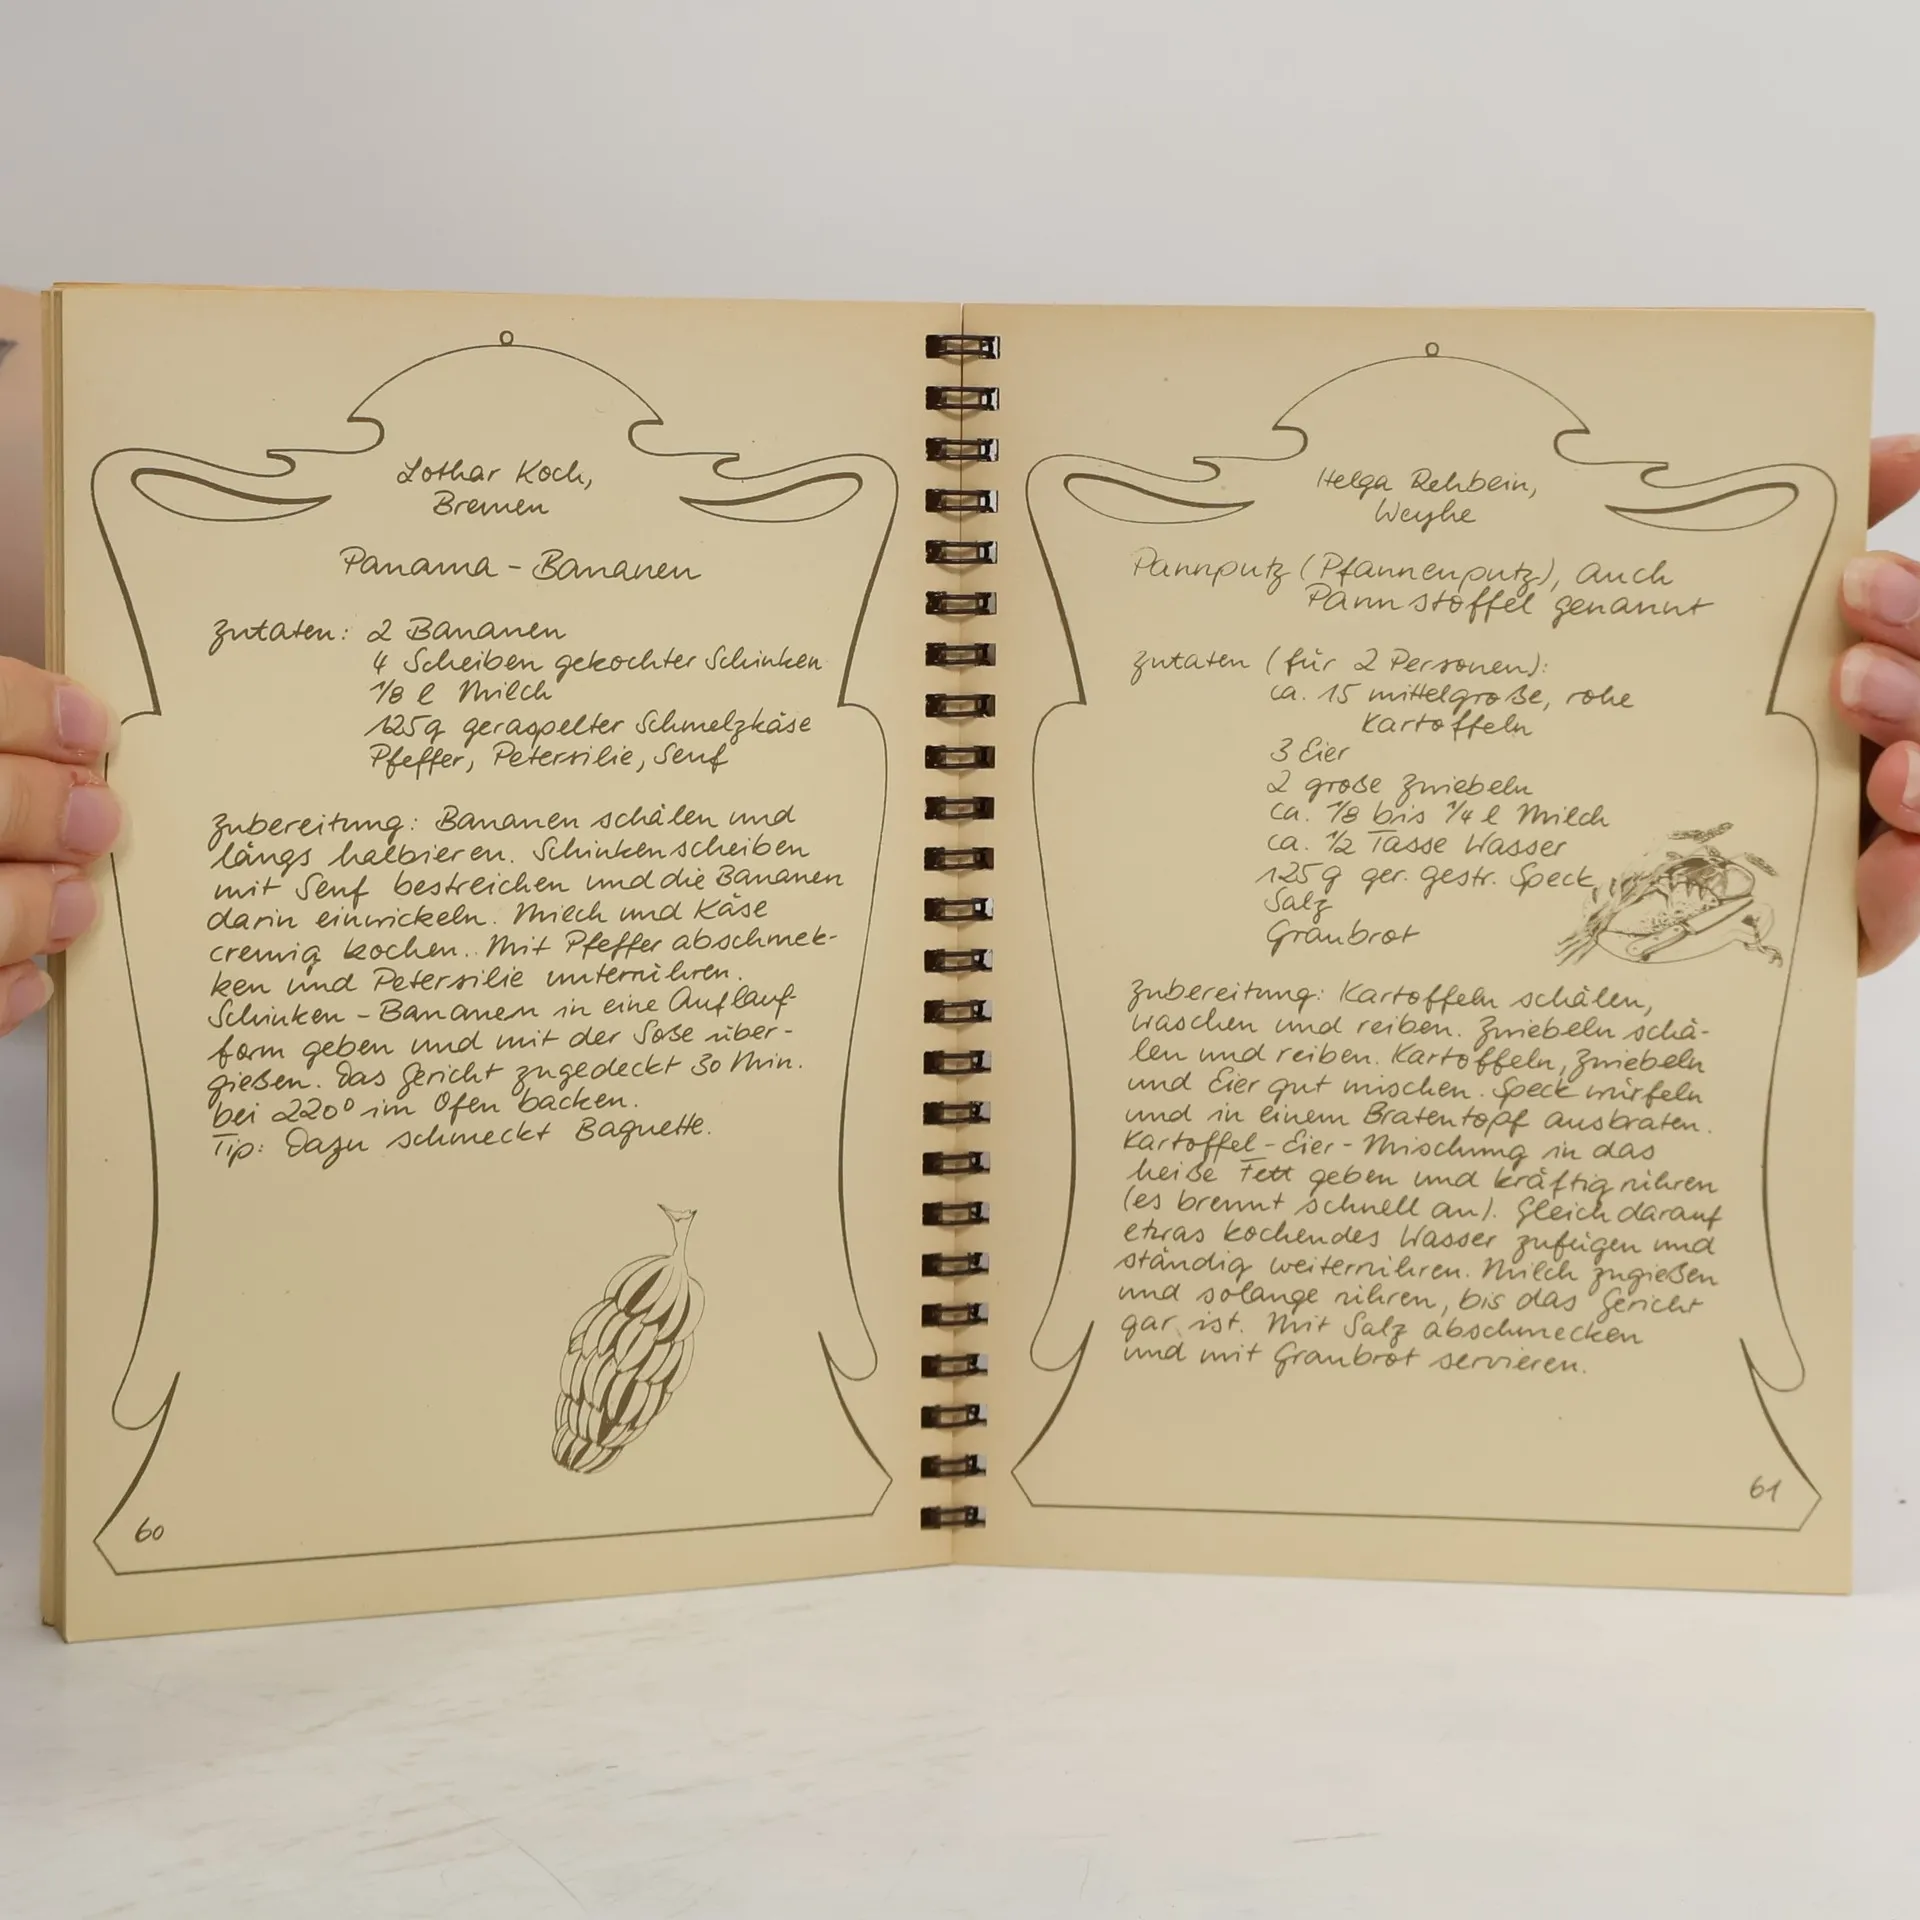 Lothar Koch,
Bremen
Panama - Bananen
Zutaten: 2 Bananen
4 Scheiben gekochter Schinken
1/8 l Milch
125g geraspelter Schmelzkäse
Pfeffer, Petersilie, Senf
Zubereitung: Bananen schälen und
längs halbieren. Schinkenscheiben
mit Senf bestreichen und die Bananen
darin einwickeln. Milch und Käse
cremig kochen.. Mit Pfeffer abschmek-
ken und Petersilie unterrühren.
Schinken - Bananen in eine Auflauf-
form geben und mit der Soße über-
gießen. Das Gericht zugedeckt 30 Min.
bei 220° im Ofen backen.
Tip: Dazu schmeckt Baguette.
60
Helga Rehbein,
Weyhe
Pannputz (Pfannenputz), auch
Pannstoffel genannt
Zutaten (für 2 Personen):
ca. 15 mittelgroße, rohe
Kartoffeln
3 Eier
2 große Zwiebeln
ca. 1/8 bis 1/4 l Milch
ca. 1/2 Tasse Wasser
125g ger. gestr. Speck
Salz
Graubrot
Zubereitung: Kartoffeln schälen,
waschen und reiben. Zwiebeln schä-
len und reiben. Kartoffeln, Zwiebeln
und Eier gut mischen. Speck würfeln
und in einem Bratentopf ausbraten.
Kartoffel-Eier-Mischung in das
heiße Fett geben und kräftig rühren
(es brennt schnell an). Gleich darauf
etwas kochendes Wasser zufügen und
ständig weiterrühren. Milch zugießen
und solange rühren, bis das Gericht
gar ist. Mit Salz abschmecken
und mit Graubrot servieren.
61